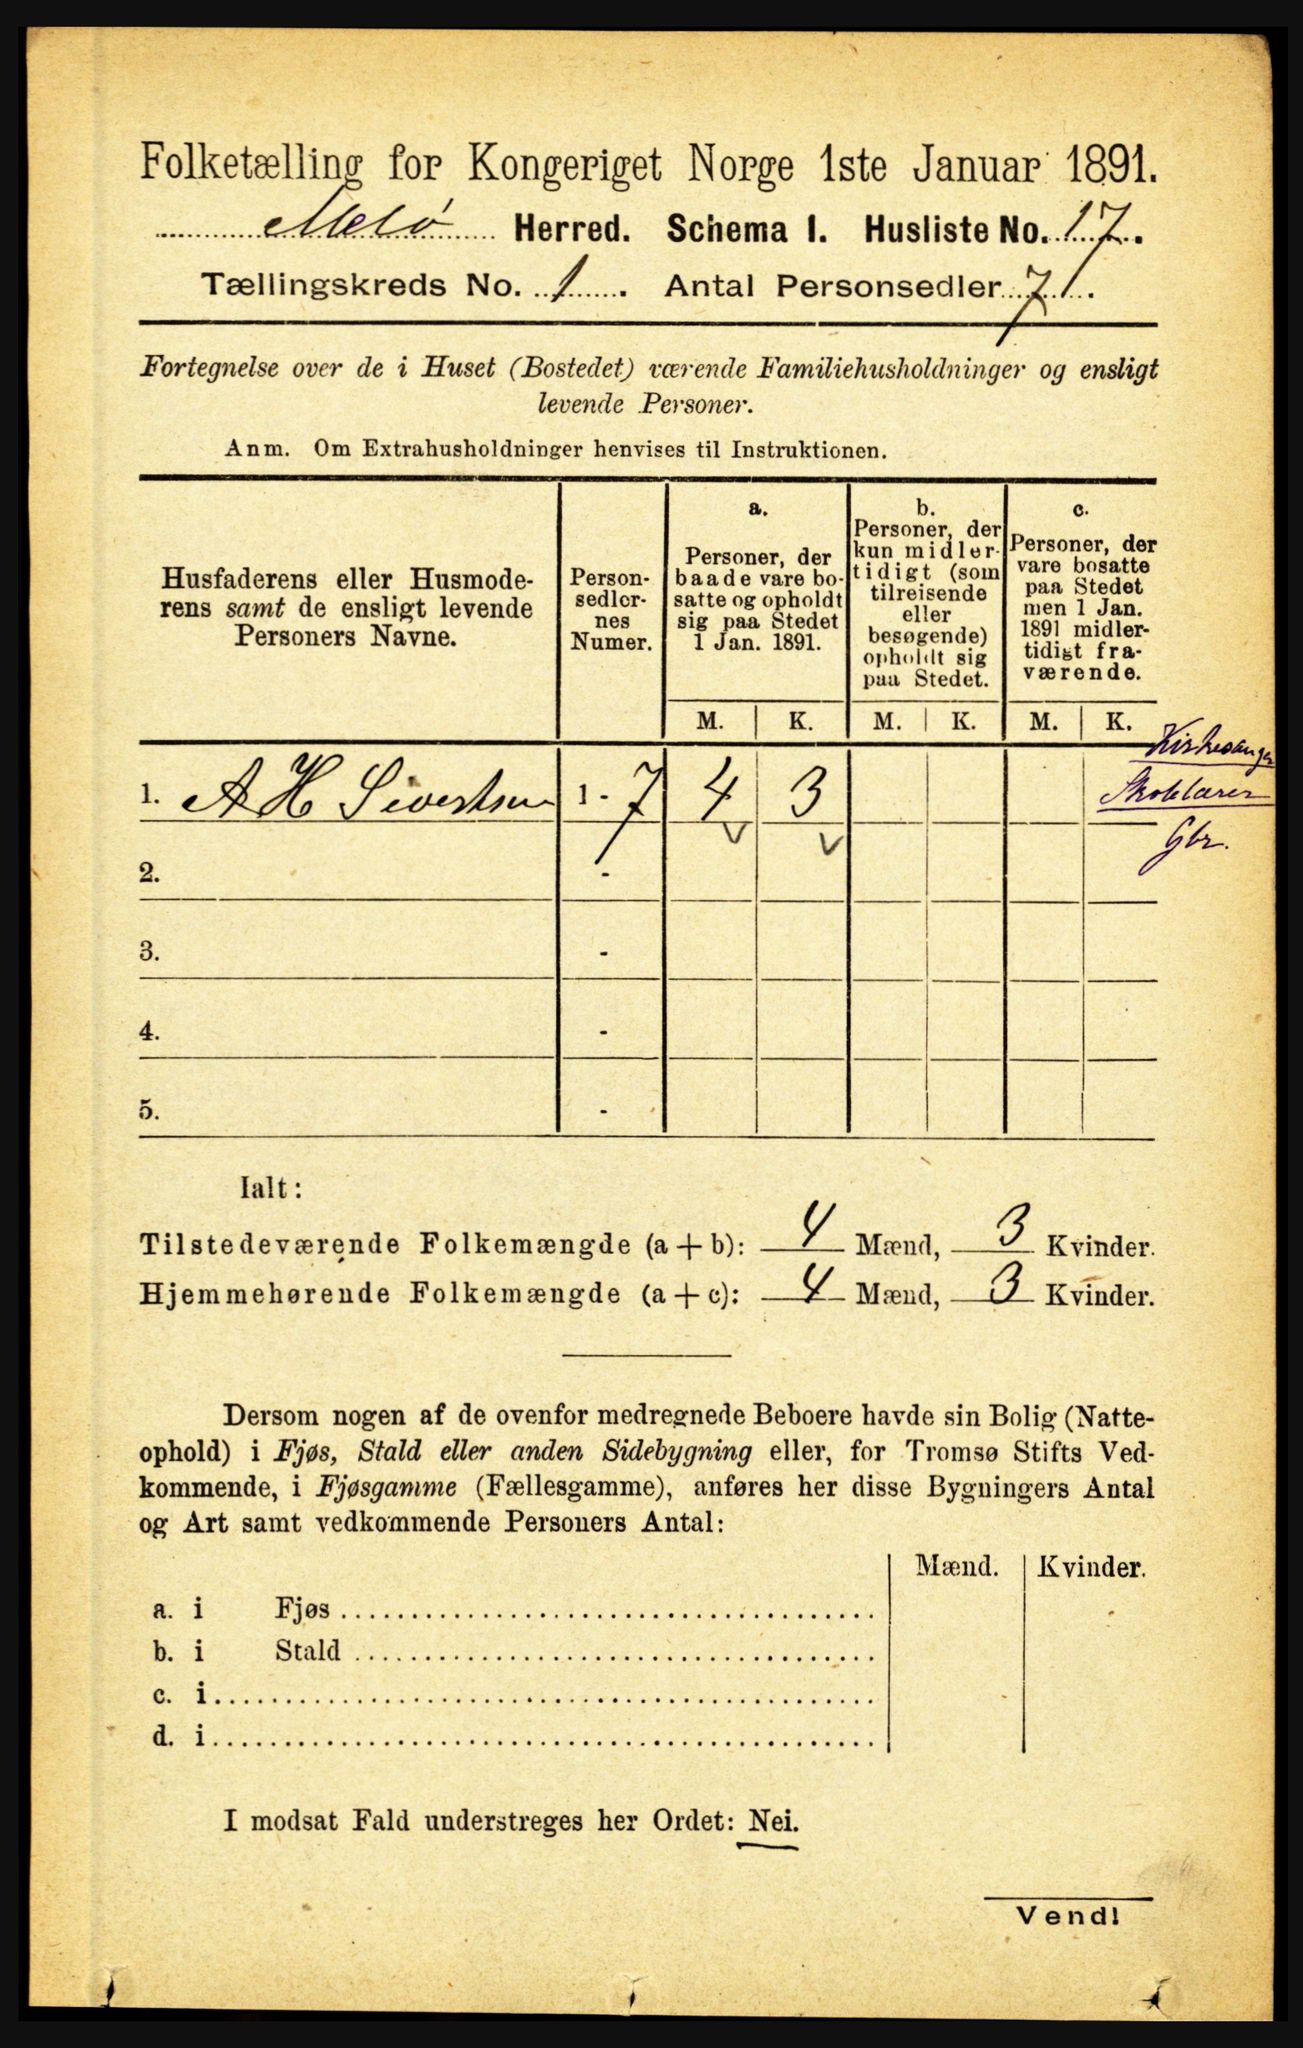 Folketælling for Kongeriget Norge 1ste Januar 1891.
Melø Herred. Schema I. Husliste No. 17.
Tællingskreds No. 1. Antal Personsedler 7.
Fortegnelse over de i Huset (Bostedet) værende Familiehusholdninger og ensligt
levende Personer.
Anm. Om Extrahusholdninger henvises til Instruktionen.
Husfaderens eller Husmode-
rens samt de ensligt levende
Personers Navne.
Person-
sedler-
nes
Numer.
a.
Personer, der
baade vare bo-
satte og opholdt
sig paa Stedet
1 Jan. 1891.
b.
Personer, der
kun midler-
tidigt (som
tilreisende
eller
besøgende)
opholdt sig
paa Stedet.
c.
Personer, der
vare bosatte
paa Stedet
men 1 Jan.
1891 midler-
tidigt fra-
værende.
M. K. M. K. M. K.
Kirkesanger
1. A H Sivertsen 1 - 7 4 3 Skolelærer
Gbr.
2. -
3. -
4. -
5. -
Ialt:
Tilstedeværende Folkemængde (a + b): 4 Mænd, 3 Kvinder.
Hjemmehørende Folkemængde (a + c): 4 Mænd, 3 Kvinder.
Dersom nogen af de ovenfor medregnede Beboere havde sin Bolig (Natte-
ophold) i Fjøs, Stald eller anden Sidebygning eller, for Tromsø Stifts Ved-
kommende, i Fjøsgamme (Fællesgamme), anføres her disse Bygningers Antal
og Art samt vedkommende Personers Antal:
Mænd. Kvinder.
a. i Fjøs
b. i Stald
c. i
d. i
I modsat Fald understreges her Ordet: Nei.
Vend!